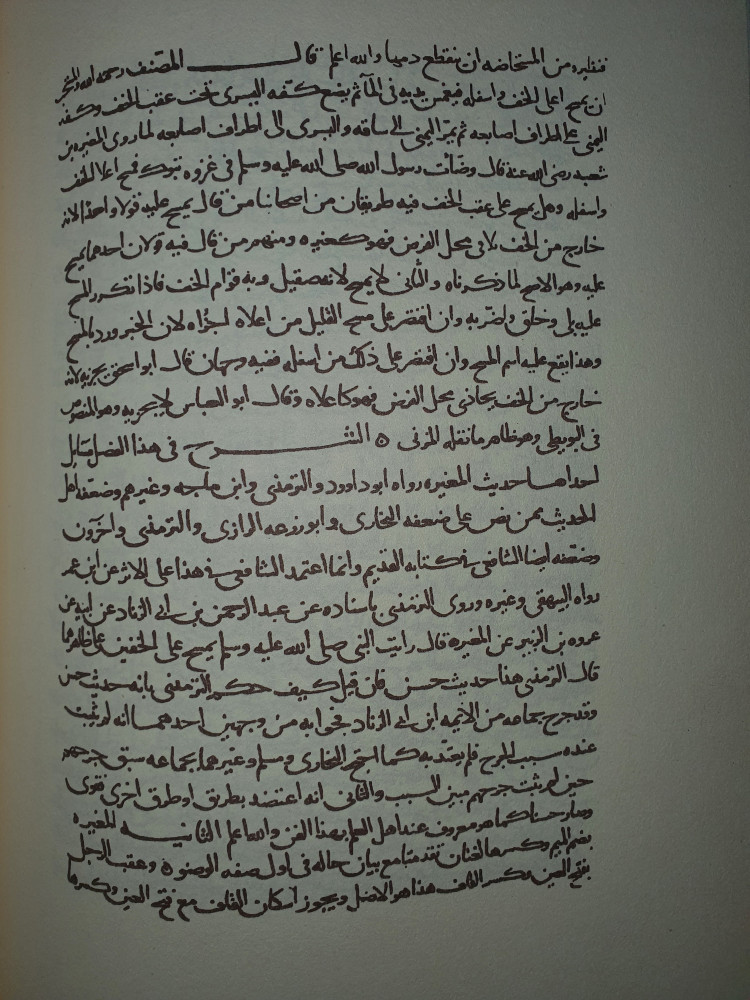 فنظيره من المستحاضه ان ينقطع دمها والله اعلم قال المصنف رحمه الله والمستحب
ان يمسح اعلى الخف واسفله فيغمس يديه في الماء ثم يضع كفه اليسرى تحت عقب الخف وكفه
اليمنى على اطراف اصابعه ثم يمر اليمنى الى ساقه واليسرى الى اطراف اصابعه لما روى المغيره بن
شعبه رضي الله عنه قال وضأت رسول الله صلى الله عليه وسلم في غزوه تبوك فمسح اعلا الخف
واسفله وهل يمسح على عقب الخف فيه طريقان من اصحابنا من قال يمسح عليه قولا واحدا لانه
خارج من الخف يلاقي محل الفرض فهو كغيره ومنهم من قال فيه قولان احدهما يمسح
عليه وهو الاصح لما ذكرناه والثاني لا يمسح لانه صقيل وبه قوام الخف فاذا تكرر المسح
عليه بلي وخلق واضر به وان اقتصر على مسح القليل من اعلاه اجزاه لان الخبر ورد بالمسح
وهذا يقع عليه اسم المسح وان اقتصر على ذلك من اسفله ففيه وجهان قال ابو اسحق يجزيه لانه
خارج من الخف يحاذي محل الفرض فهو كاعلاه وقال ابو العباس لا يجزيه وهو المنصوص
في البويطي وهو ظاهر ما نقله المزني ه الشرح في هذا الفصل مسايل
احداها حديث المغيره رواه ابو داوود والترمذي وابن ماجه وغيرهم وضعفه اهل
الحديث ممن نص على ضعفه البخاري وابو زرعه الرازي والترمذي واخرون
وضعفه ايضا الشافعي في كتابه القديم وانما اعتمد الشافعي في هذا على الاثر عن ابن عمر
رواه البيهقي وغيره وروى الترمذي باسناده عن عبد الرحمن بن ابي الزناد عن ابيه عن
عروه بن الزبير عن المغيره قال رايت النبي صلى الله عليه وسلم يمسح على الخفين على ظاهرهما
قال الترمذي هذا حديث حسن فان قيل كيف حكم الترمذي بانه حديث حسن
وقد جرح جماعه من الايمه ابن ابي الزناد فجوابه من وجهين احدهما انه لم يثبت
عنده سبب الجرح فلم يعتد به كما احتج البخاري ومسلم وغيرهما بجماعه سبق جرحهم
حين لم يثبت جرحهم مبين السبب والثاني انه اعتضد بطريق او طرق اخرى فقوي
وصار حسنا كما هو معروف عند اهل العلم بهذا الفن والله اعلم الثانيه المغيره
بضم الميم وكسرها لغتان تقدمتا مع بيان حاله في اول صفه الوضوء ه وعقب الرجل
بفتح العين وكسر القاف هذا هو الاصل ويجوز اسكان القاف مع فتح العين وكسرها